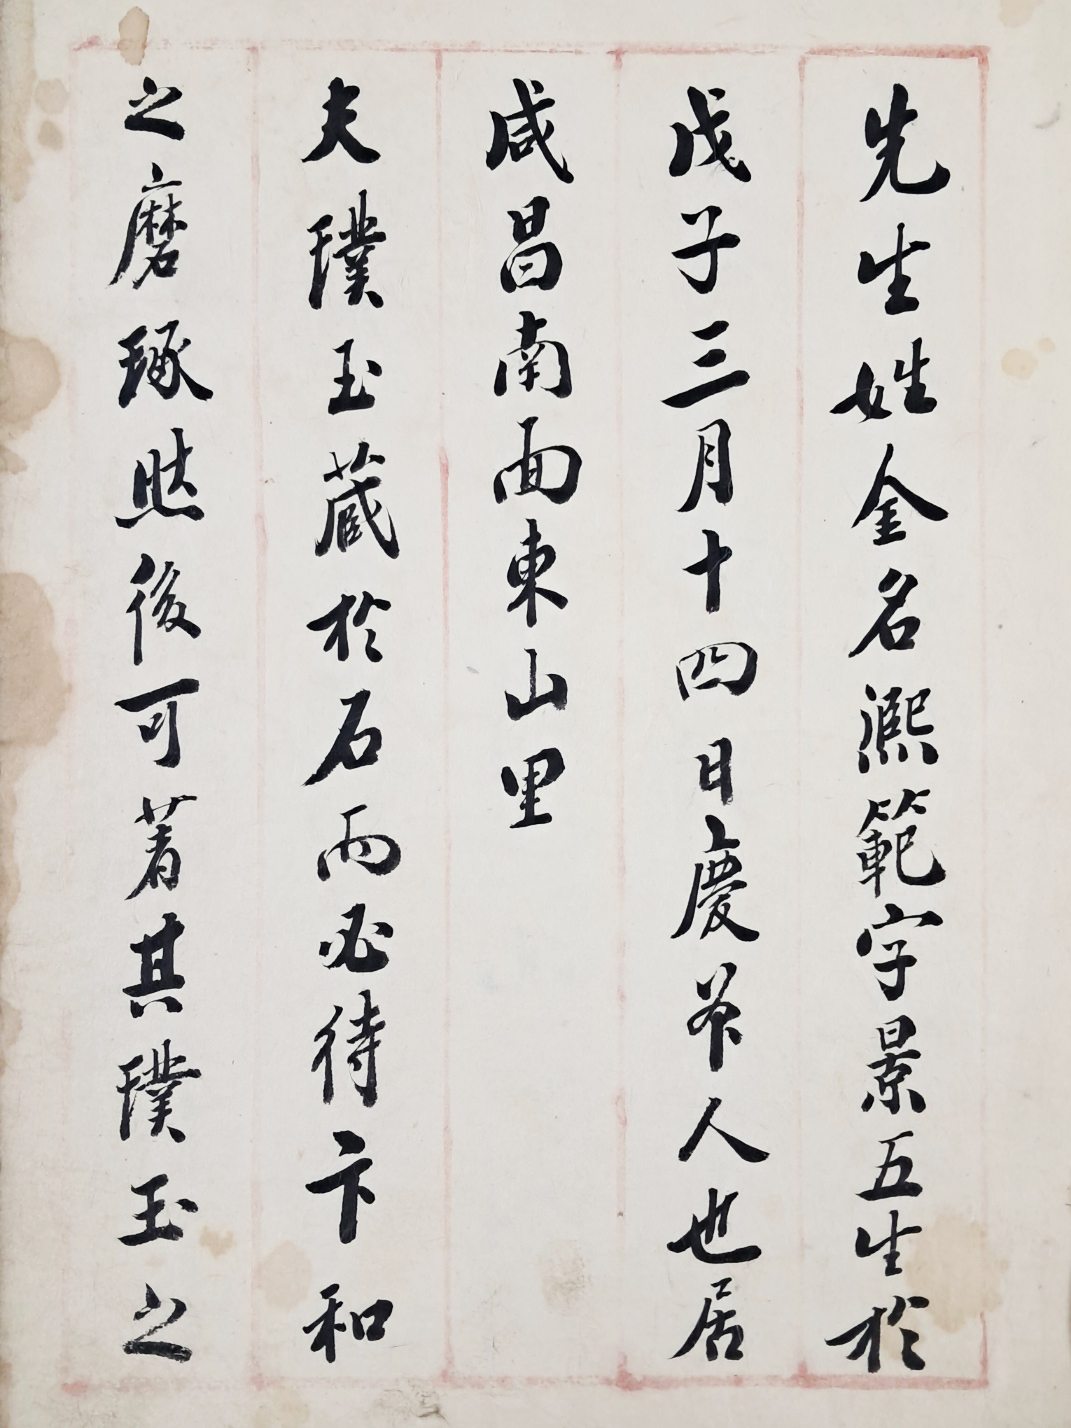 先生姓金名熙範字景五生於
戊子三月十四日慶州人也居
咸昌南面東山里
夫璞玉蔵於石而必待卞和
之磨琢然後可著其璞玉之